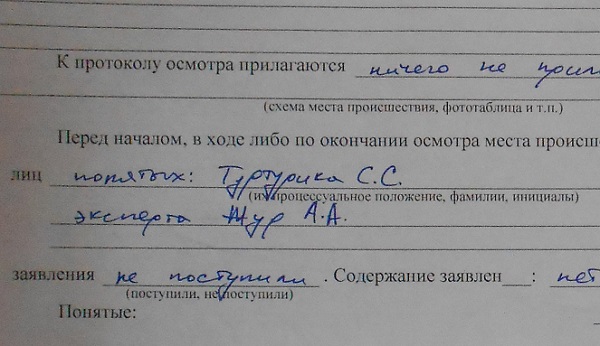 К протоколу осмотра прилагаются ничего не
(схема места происшествия, фототаблица и т.п.)
Перед началом, в ходе либо по окончании осмотра места происш
лиц понятых: Туртурика С.С.
(их процессуальное положение, фамилии, инициалы)
эксперта Жур А.А.
заявления не поступили. Содержание заявлен___: нет
(поступили, не поступили)
Понятые: